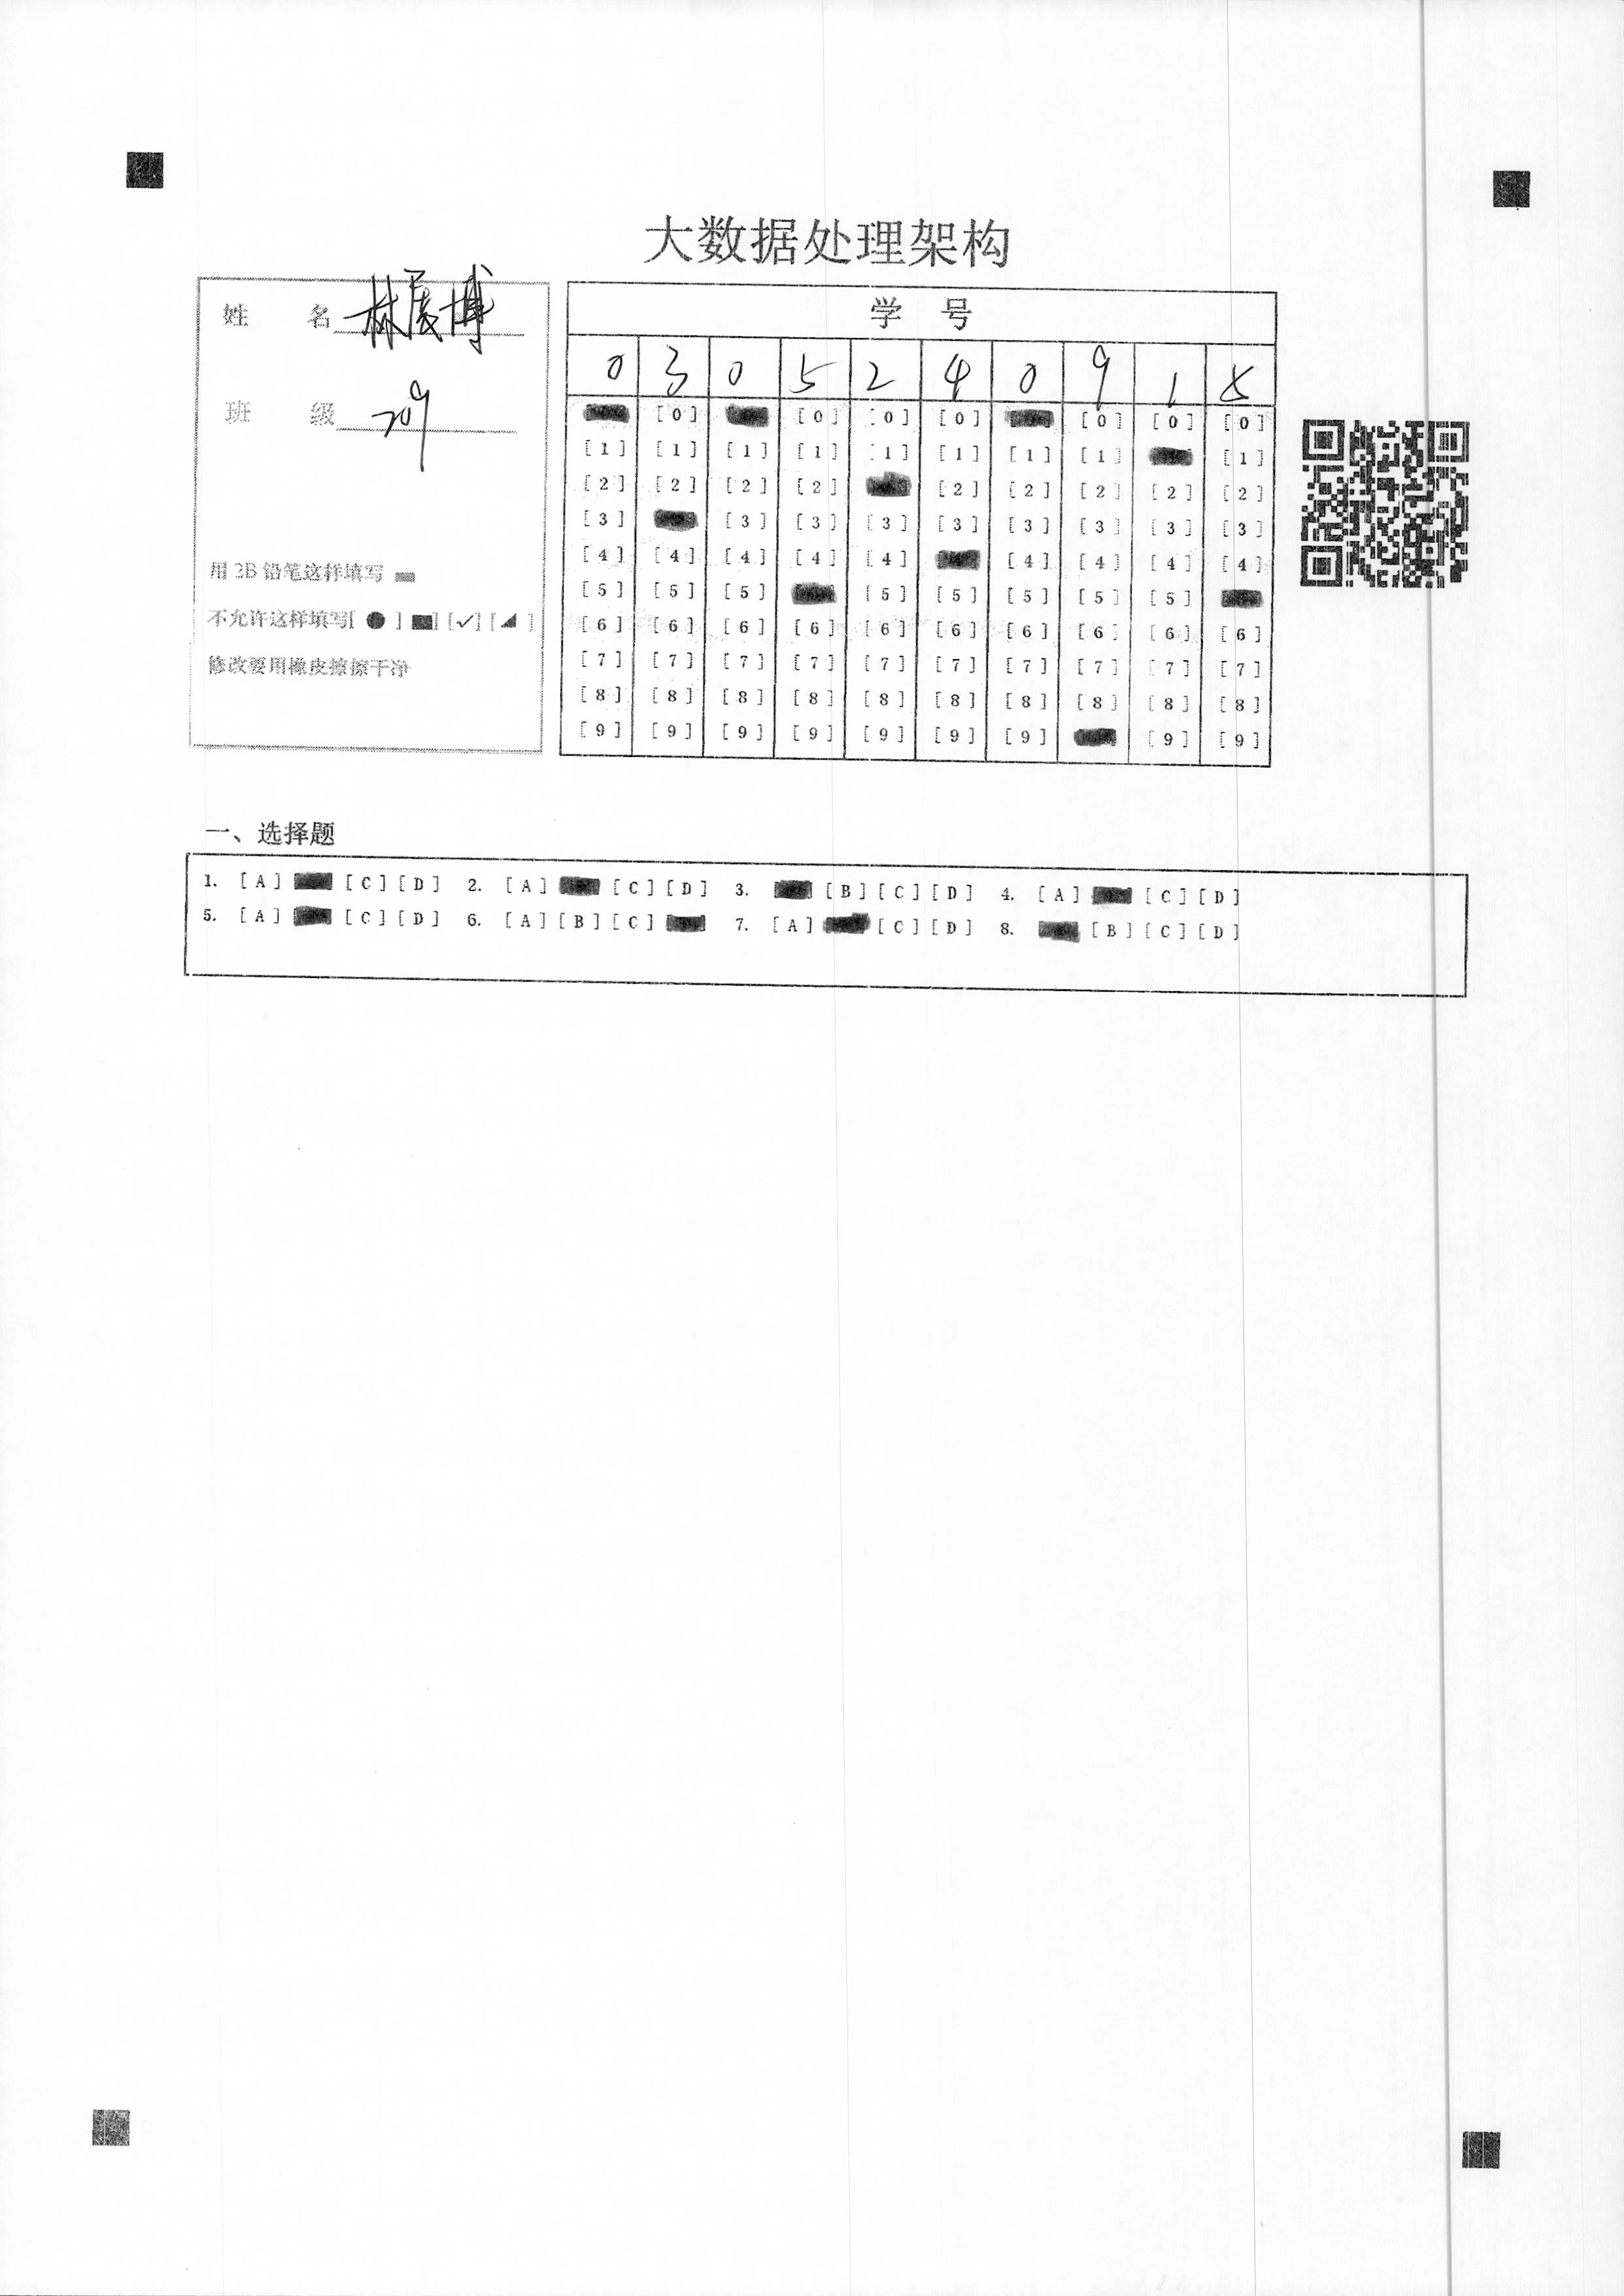 大数据处理架构
姓 名 林展博
班 级 709
用 2B 铅笔这样填写
不允许这样填写[ ● ] ■] [✓] [◢ ]
修改要用橡皮擦擦干净
学 号
0 3 0 5 2 4 0 9 1 5
[0] [0] [0] [0] [0] [0] [0]
[1] [1] [1] [1] [1] [1] [1] [1] [1]
[2] [2] [2] [2] [2] [2] [2] [2] [2]
[3] [3] [3] [3] [3] [3] [3] [3] [3]
[4] [4] [4] [4] [4] [4] [4] [4] [4]
[5] [5] [5] [5] [5] [5] [5] [5]
[6] [6] [6] [6] [6] [6] [6] [6] [6] [6]
[7] [7] [7] [7] [7] [7] [7] [7] [7] [7]
[8] [8] [8] [8] [8] [8] [8] [8] [8] [8]
[9] [9] [9] [9] [9] [9] [9] [9] [9]
一、选择题
1. [A] [C] [D] 2. [A] [C] [D] 3. [B] [C] [D] 4. [A] [C] [D]
5. [A] [C] [D] 6. [A] [B] [C] 7. [A] [C] [D] 8. [B] [C] [D]